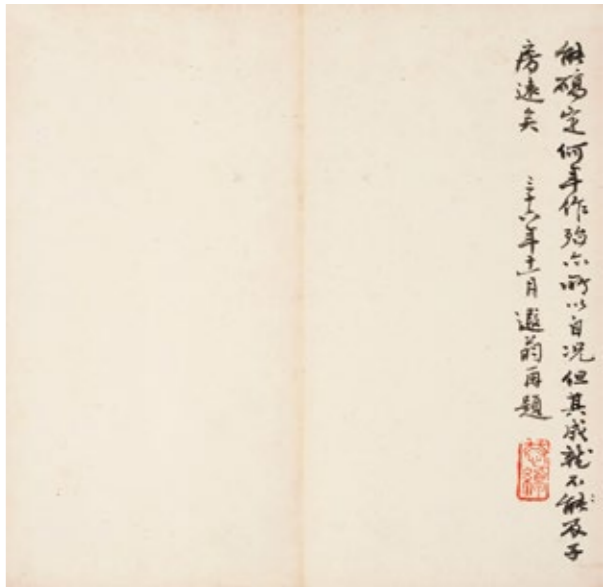 能碻定何年作殆亦所以自况但其成就不能及子
房遠矣　三十六年十一月　遐翁再題
恭綽